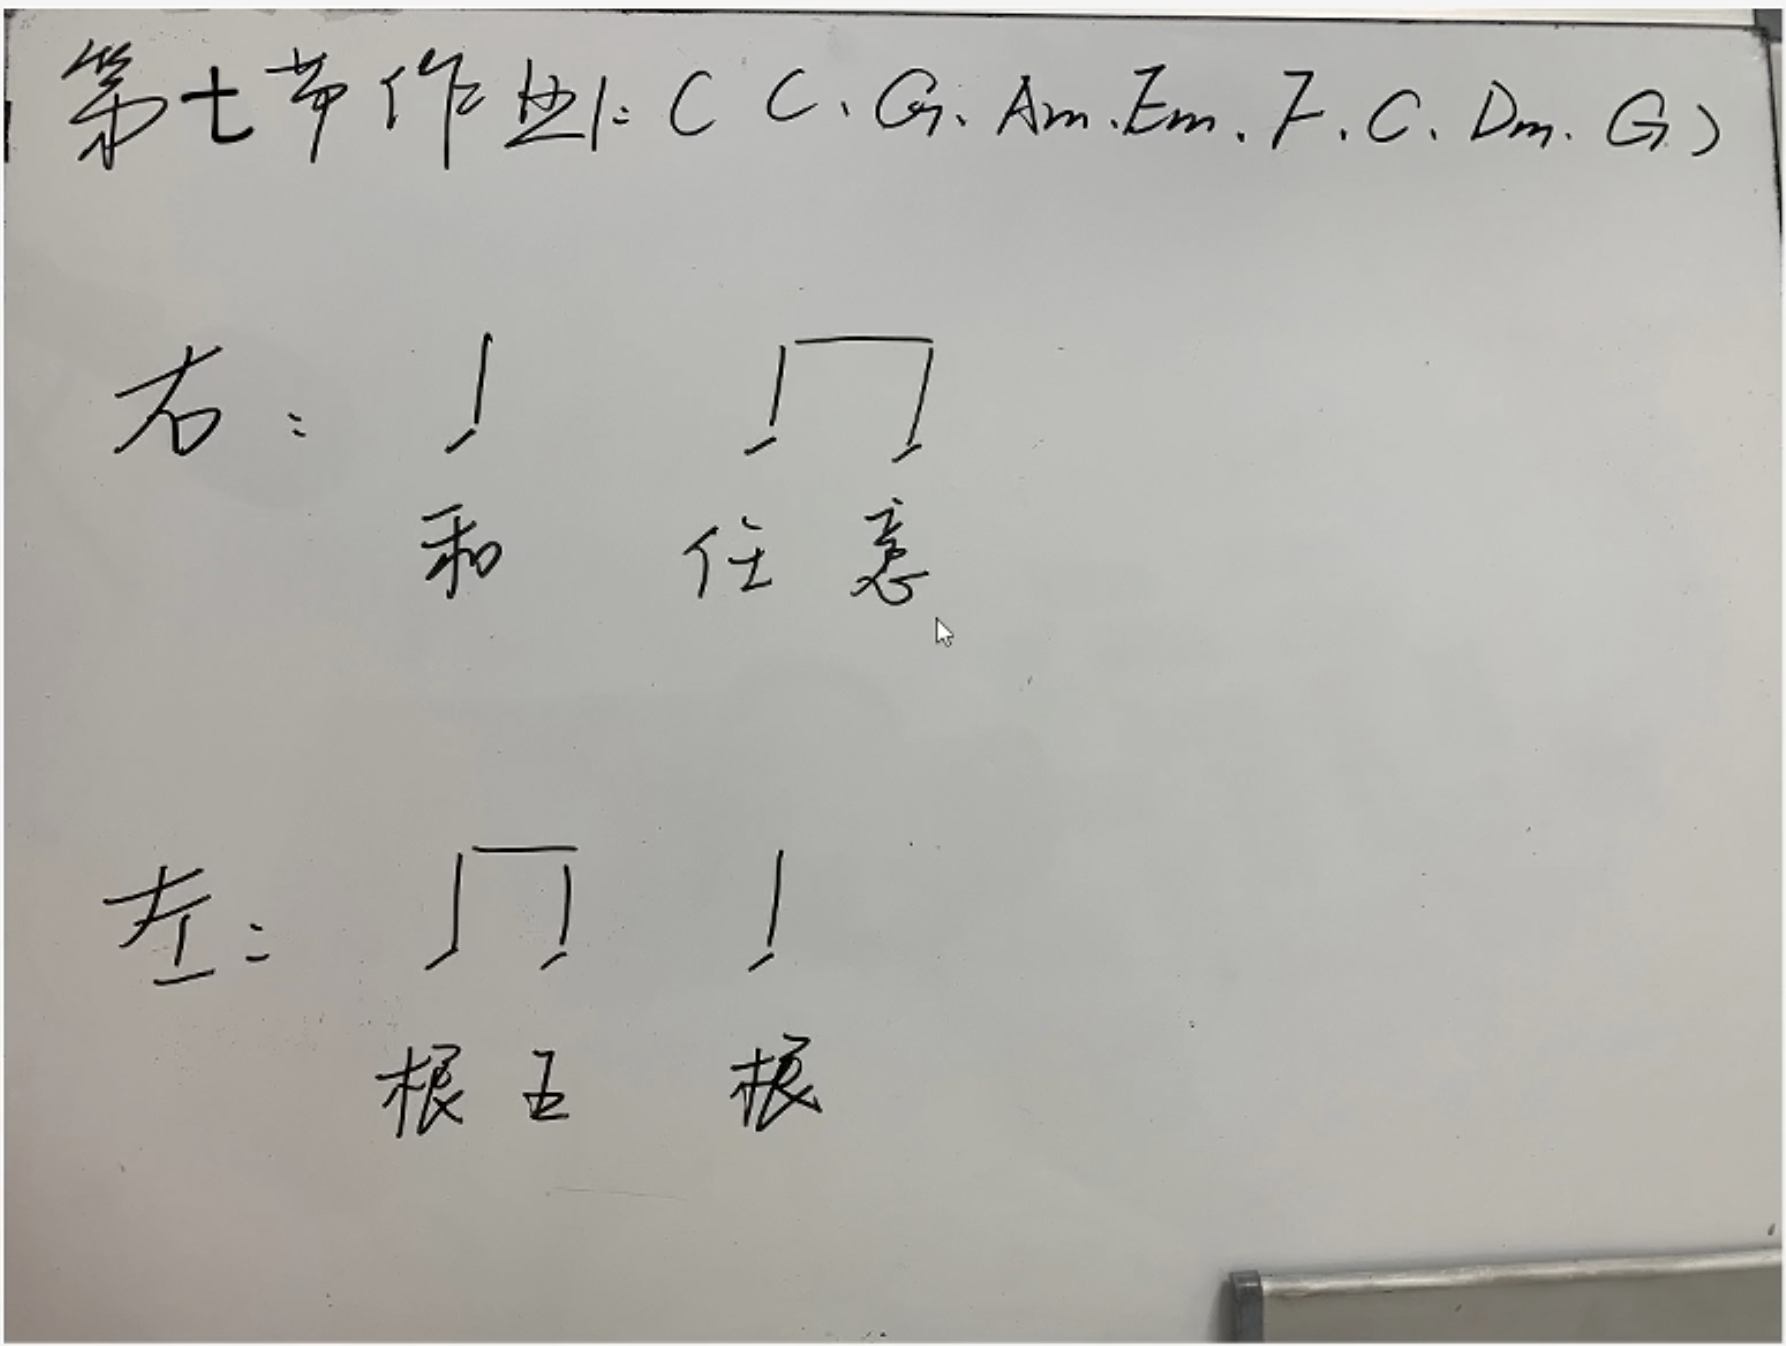 第七节作业1:( C、G、Am、Em、F、C、Dm、G )
右:
和 任 意
左:
根 五 根